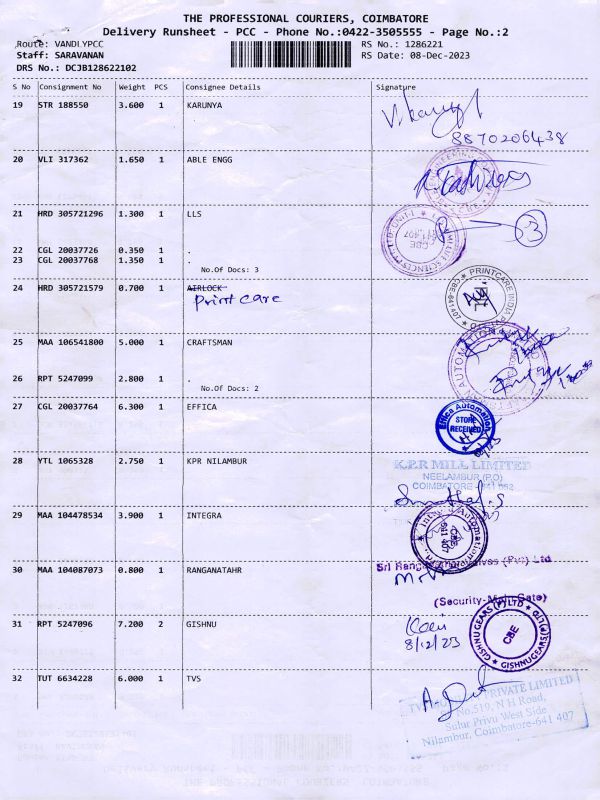 THE PROFESSIONAL COURIERS, COIMBATORE
Delivery Runsheet - PCC - Phone No.:0422-3505555 - Page No.:2
Route: VANDLYPCC RS No.: 1286221
Staff: SARAVANAN RS Date: 08-Dec-2023
DRS No.: DCJB128622102
S No Consignment No Weight PCS Consignee Details Signature
19 STR 188550 3.600 1 KARUNYA
8870206438
20 VLI 317362 1.650 1 ABLE ENGG
21 HRD 305721296 1.300 1 LLS
3
22 CGL 20037726 0.350 1 .
23 CGL 20037768 1.350 1 .
No.Of Docs: 3
24 HRD 305721579 0.700 1 AIRLOCK
Print care
PRINTCARE INDIA
25 MAA 106541800 5.000 1 CRAFTSMAN
26 RPT 5247099 2.800 1 .
No.Of Docs: 2
27 CGL 20037764 6.300 1 EFFICA
Effica Automation
STORE
RECEIVED
28 YTL 1065328 2.750 1 KPR NILAMBUR
K.P.R MILL LIMITED
NEELAMBUR (P.O)
COIMBATORE
29 MAA 104478534 3.900 1 INTEGRA
CBE
641 407
30 MAA 104087073 0.800 1 RANGANATAHR
(Pvt) Ltd
31 RPT 5247096 7.200 2 GISHNU
8/12/23
GISHNU GEARS (P) LTD
CBE
32 TUT 6634228 6.000 1 TVS
PRIVATE LIMITED
No.519, N H Road,
Sulur Privu West Side
Nilambur, Coimbatore-641 407